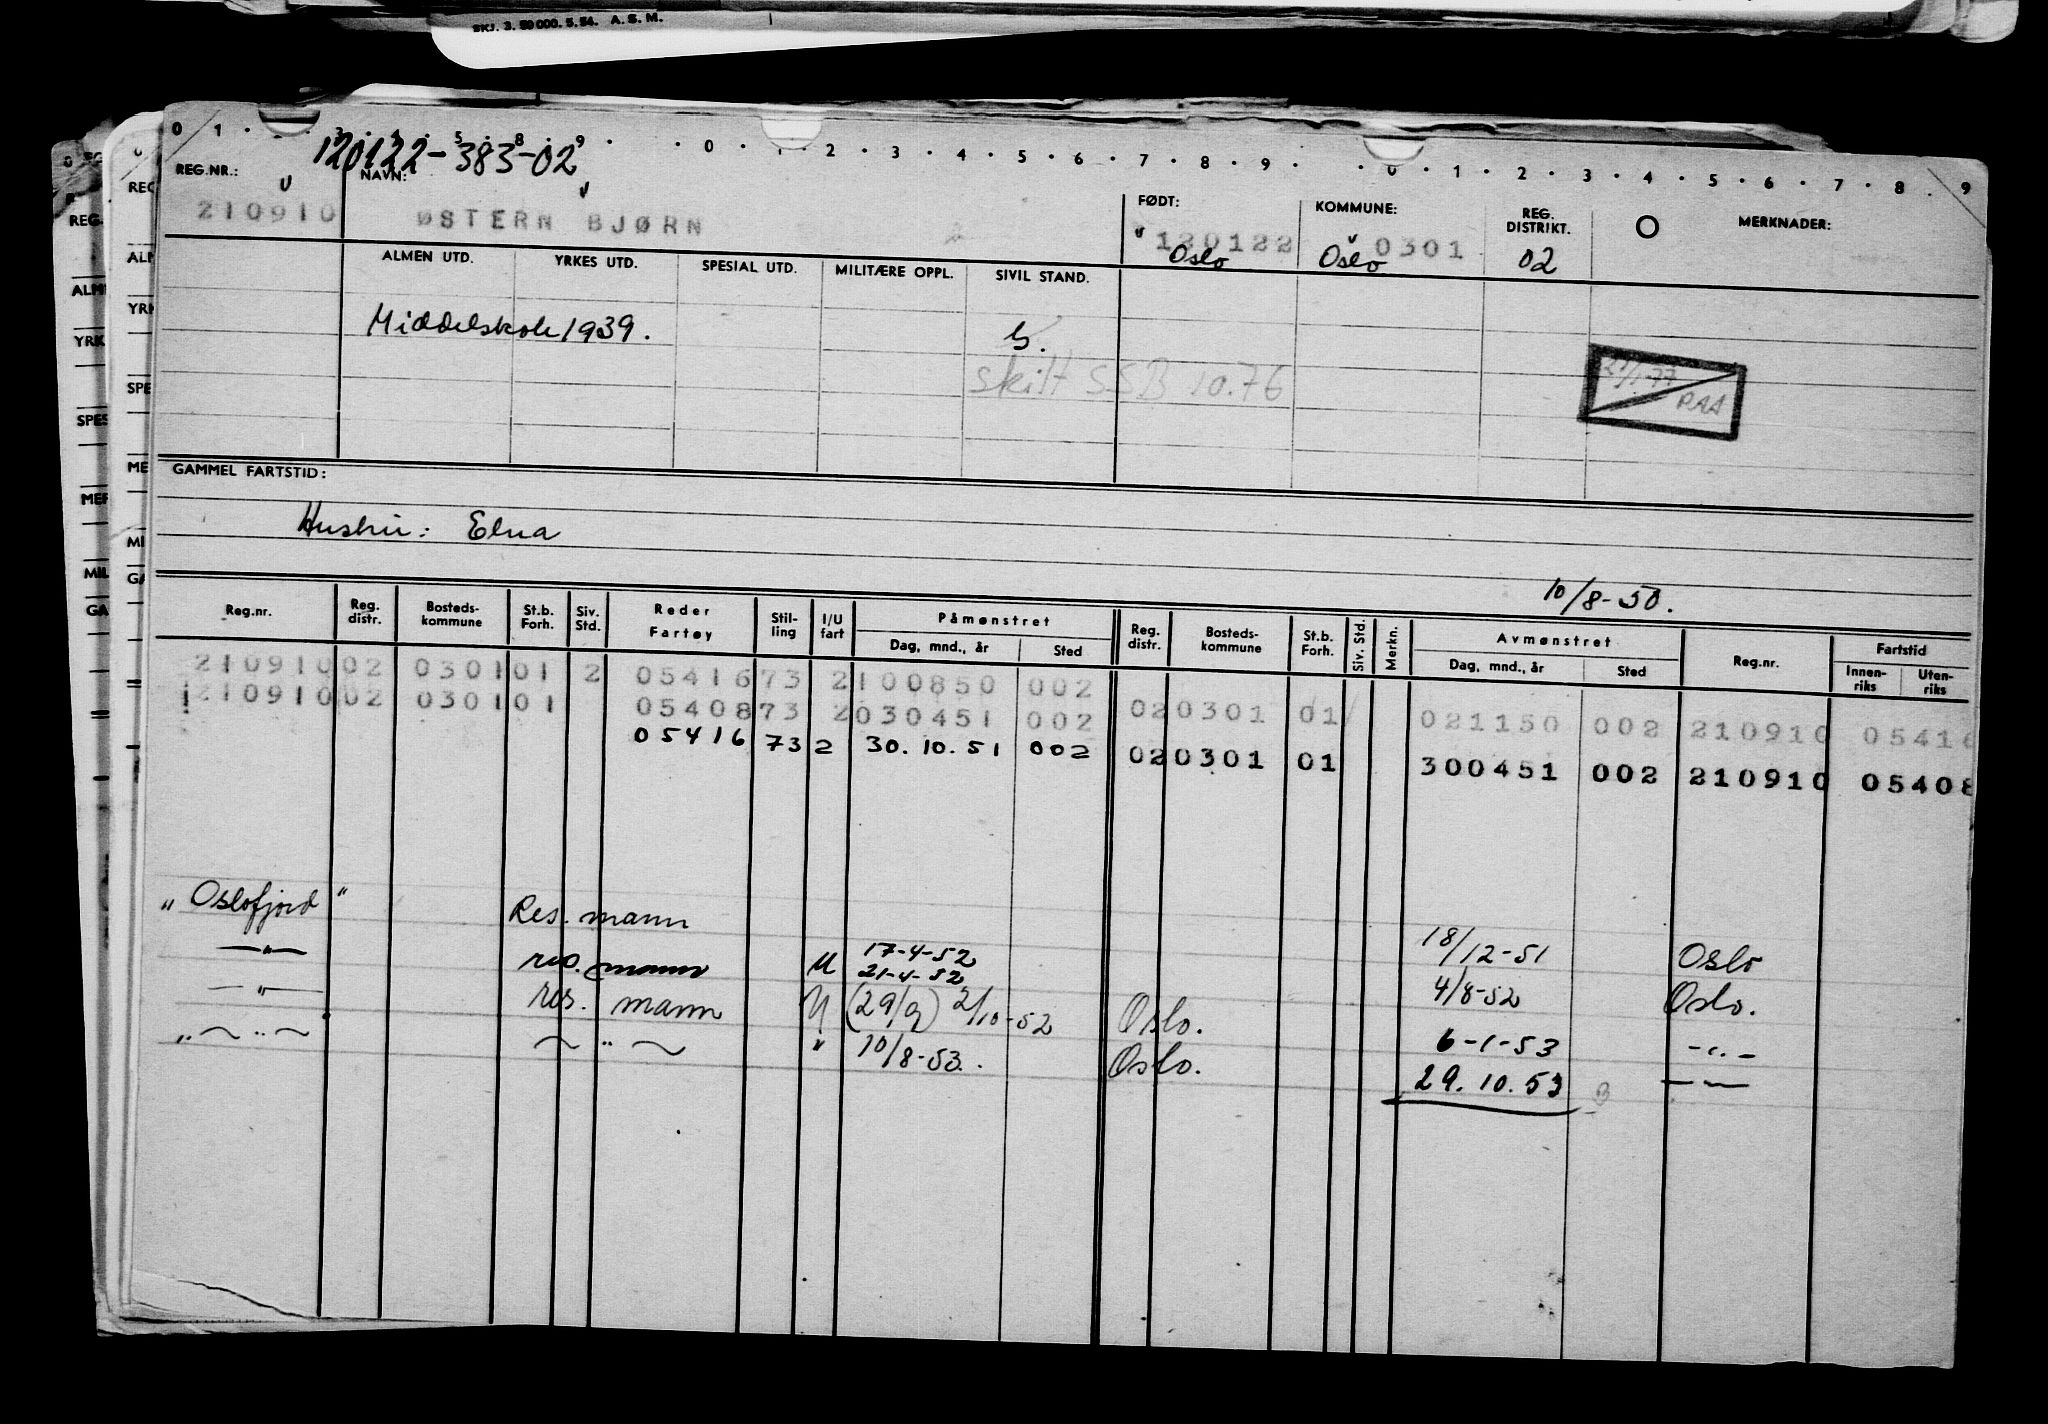 SKJ. 3. 50 000. 5. 54. A. S. M.
120122-383-02
REG.NR.: NAVN: FØDT: KOMMUNE: REG. DISTRIKT. MERKNADER:
210910 ØSTERN BJØRN 120122 0301
Oslo Oslo 02
ALMEN UTD. YRKES UTD. SPESIAL UTD. MILITÆRE OPPL. SIVIL STAND.
Middelskole 1939. G.
skilt SSB 10.76
RAA
GAMMEL FARTSTID:
Hustru: Elna
10/8-50.
Reg.nr. Reg. distr. Bosteds-kommune St.b. Forh. Siv. Std. Reder Fartøy Stil-ling I/U fart Påmønstret Dag, mnd., år Sted Reg. distr. Bosteds-kommune St.b. Forh. Siv. Std. Merkn. Avmønstret Dag, mnd., år Sted Reg.nr. Fartstid Innen-riks Uten-riks
210910 02 0301 01 2 05416 73 2 100850 002
210910 02 0301 01 05408 73 2 030451 002 02 0301 01 021150 002 210910 05416
05416 73 2 30.10.51 002 02 0301 01 300451 002 210910 05408
"Oslofjord" Res. mann 18/12-51 Oslo
—"— res. mann U 17-4-52
21-4-52 4/8-52 Oslo.
—"— res. mann U (29/9) 2/10-52 Oslo. 6-1-53 -"-
"~ " ~ ~ " ~ " 10/8-53. Oslo. 29.10.53 — —